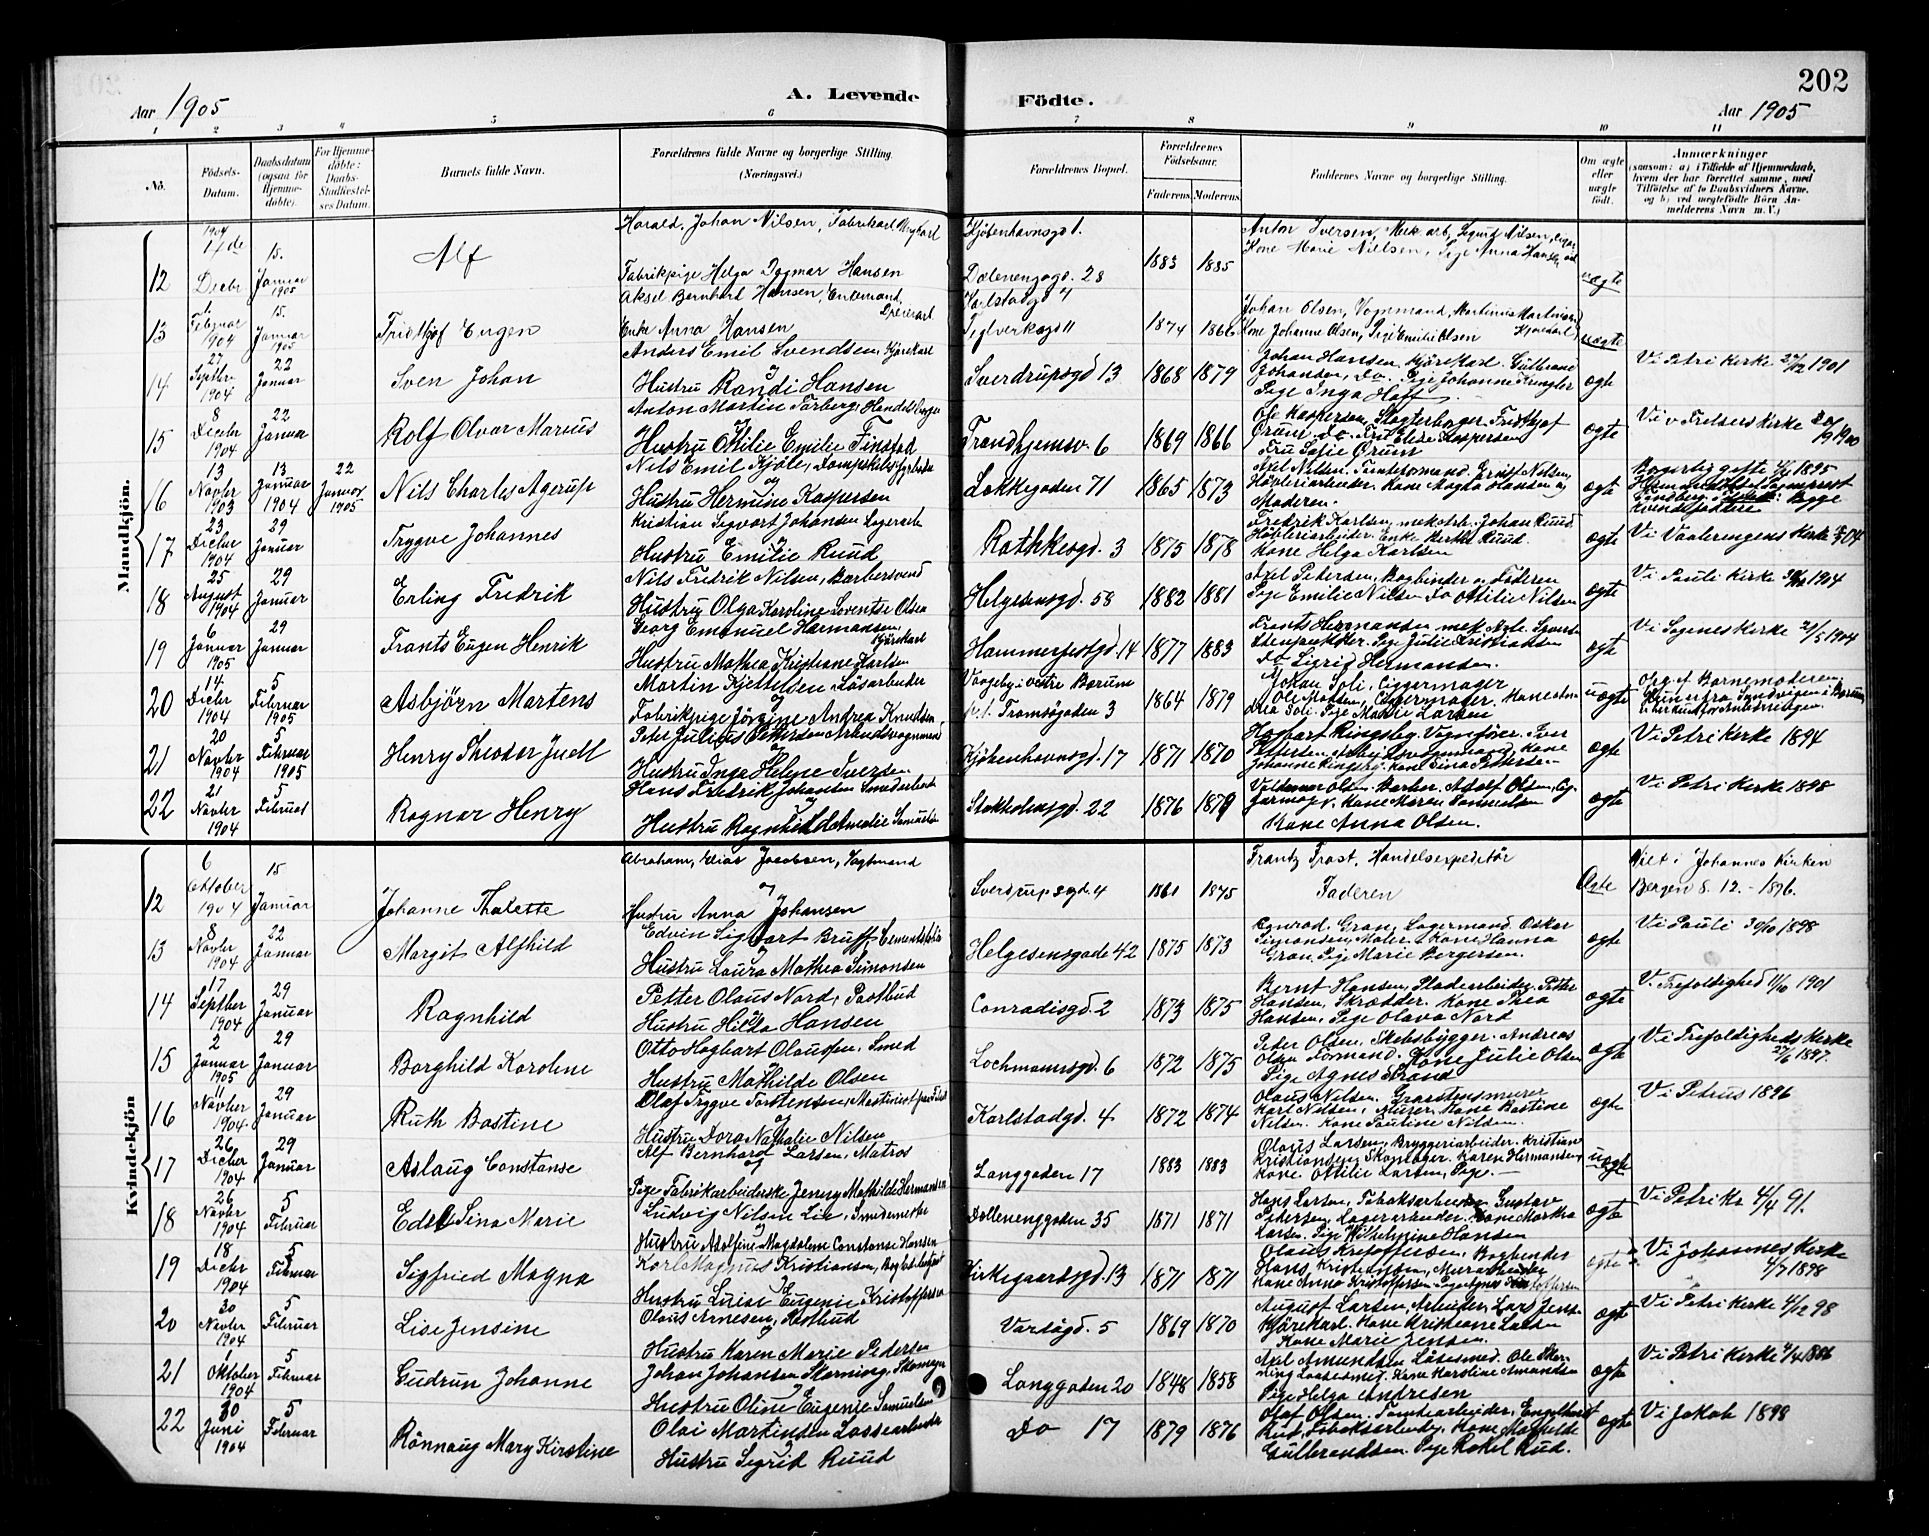 202
Aar 1905
A. Levende
Födte.
Aar 1905
1 2 3 4 5 6 7 8 9 10 11
No.
Födsels-Datum.
Daabsdatum (ogsaa for Hjemmedöbte).
For Hjemmedöbte: Daabs-Stadfæstelses Datum.
Barnets fulde Navn.
Forældrenes fulde Navne og borgerlige Stilling. (Næringsvei.)
Forældrenes Bopæl.
Forældrenes Födselsaar.
Faderens. Moderens.
Faddernes Navne og borgerlige Stilling.
Om ægte eller uægte födt.
Anmærkninger
(saasom: a) i Tilfælde af Hjemmedaab, hvem der har forrettet samme, med Tilföielse af to Daabsvidners Navne. og b) ved uægtefödte Börn Anmelderens Navn m. V.)
Mandkjön.
12 1904 Decbr 15. Januar 1905 Alf
Harald Johan Nilsen, Fabrikarb
Fabrikpige Helga Dagmar Hansen
Kjöbenhavnsgd 1.
Dælenengagd. 28
1883 1885
Anton Iversen, Mek arb, Sigurd Nilsen,
Kone Marie Nielsen, Pige Anna Hansen
uægte
13 Februar 1904 15. Januar 1905 Fridthjof Eugen
Aksel Bernhard Hansen, Enkemand,
Enke Anna Hansen
Karlstadgd 4
Teglverksgd 11
1874 1866
Johan Olsen, Vognmand, Martinius Martinsen
Kone Johanne Olsen, Pige Emilie Olsen
uægte
14 27 Septbr 1904 22 Januar Sven Johan
Anders Emil Svendsen, Kjörekarl
Hustru Randi Hansen
Sverdrupsgd 13
1868 1879
Johan Hansen Kjörekarl. Gulbrand
Johansen, Do. Pige Johanne Kringler
Pige Inga Hoff
ægte
Vi Petri Kerke 27/12 1901
15 8 Decbr 1904 22 Januar Rolf Olvar Marius
Anton Martin Torberg, Handelsborger
Hustru Otilie Emilie Finstad
Trondhjemsv. 6
1869 1866
Ole Kaspersen, Slagterborger. Fridthjof
Fru Sofie Örum
ægte
Vi v Frelsers Kirke 1900
16 13 Novbr 1903 13 Januar 1904 22 Januar 1905 Nils Charles Agerup
Nils Emil Kjöle,
Hustru Hermine Kaspersen
Løkkegaden 71
1865 1873
Axel Nilsen. Grust Nilsen,
Hövleriarbeider. Kone Magda Hansen og
Moderen.
ægte
Borgerlig gifte 1895
17 23 Decbr 1904 29 Januar Trygve Johannes
Kristian Sigvart Johansen Lagerarb
Hustru Emilie Ruud
Rathkesgd. 3
1875 1878
Fredrik Karlsen, mek Arb. Johan Ruud
Höbleriarbeider. Enke Berthe Ruud.
Kone Helga Karlsen
ægte
Vi Vaalerengens Kerke 04
18 25 August 1904 29 Januar Erling Fredrik
Nils Fredrik Nilsen, Barbersvend
Hustru Olga Karoline Lorentse Olsen
Helgesensgd. 58
1882 1881
Axel Petersen, Bogbinder og Faderen
Pige Emilie Nilsen Do Ottilie Nilsen
ægte
Vi Pauli Kirke 30/10 1904
19 6 Januar 1905 29 Januar Frants Eugen Henrik
Georg Emanuel Hermansen, Kjörekarl
Hustru Mathea Kristiane Karlsen
Hammerfestgd. 14
1877 1883
Frants Hermansen mek Arb.
Pige Julie Kristiansen
Do Sigrid Hermansen.
ægte
Vi Sagenes Kerke 21/5 1904
20 14 Decbr 1904 5 Februar 1905 Asbjörn Martens
Martin Kjettelsen Läsarbeider
Fabrikpige Jörgine Andrea Knudsen
Vaageby i vestre Barum
p.t. Tromsögaden 3
1864 1879
Johan Soli, Ciggermager
Ole Madsen, Ciggermager. Kone An-
drea Soli. Pige Marie Larsen
uægte
Opg. af Barnemoderen,
21 20 Novbr 1904 5 Februar 1905 Henry Theodor Juell
Peter Julius Pettersen Arbeidsvognmand
Hustru Inga Helene Iversen
Kjöbenhavnsgd. 17
1871 1870
Hogbart Ringsby. Vognförer. Iver
Johanne Ringsby. Kone Sina Pettersen
ægte
Vi Petri Kirke 1894
22 21 Novbr 1904 5 Februar Ragnar Henry
Hans Fredrik Johansen Smedarbeider
Hustru Ragnhild Amalie Samuelsen
Stokholmsgd. 22
1876 1879
Valdemar Olsen Barber. Adolf Olsen Cig-
Kone Anna Olsen.
ægte
Vi Petri Kerke 1898
Kvindekjön
12 6 Oktober 1904 15 Januar Johanne Thalette
Abraham, Elias Jacobsen, Vagtmand
og
Hustru Anna Johansen
Sverdrupsgd. 4
1861 1875
Frantz Frost, Handelsexpeditör
Faderen
Ægte
Viet i Johannes Kirken
Bergen 8. 12. - 1896.
13 8 Novbr 1904 22 Januar Margit Alfhild
Edvin Sigvart Bruff,
Hustru Laura Mathea Simonsen
Helgesensgade 42
1875 1873
Konrad Gran, Lagermand. Oskar
Simonsen, Maler. Kone Hanna
Gran. Pige Marie Bergersen.
ægte
Vi Pauli 30/10 1898
14 17 Septber 1904 29 Januar Ragnhild
Petter Olaus Nord, Postbud
Hustru Hilda Hansen
Conradisgd. 2
1873 1875
Bernt Hansen, Pladearbeider, Petter
Hansen, Skrædder. Kone Thea
Hansen, Pige Olava Nord
ægte
V. Trefoldighed 11/10 1901
15 2 Januar 1905 29 Januar Borghild Karoline
Otto Hogbart Olaussen. Smed
Hustru Mathilde Olsen
Lochmannsgd. 6
1872 1875
Peter Olsen, Skibsbygger. Andreas
Olsen Formand. Kone Julie Olsen
Pige Agnes Strand
ægte
Vi Trefoldigheds Kerke
27/6 1897.
16 11 Novber 1904 29 Januar Ruth Bastine
Olaf Trygve Torstensen,
Hustru Dora Nathalie Nilsen
Karlstadgd. 4
1872 1874
Olaus Nilsen. Graastensmurer
Karl Nilsen, Murer. Kone Bastine
Nilsen. Kone Pauline Nilsen.
ægte
Vi Petrus 1896
17 26 Decber 1904 29 Januar Aslaug Constanse
Alf Bernhard Larsen, Matros
og
Pige Fabrikarbeiderske Jenny Mathilde Hermansen
Langgaden 17
1883 1883
Olaus Larsen, Bryggeriarbeider. Kristian
Kristiansen, Skomager. Karen Hermansen,
Kone. Ottilie Larsen, Pige.
uægte
18 26 Novbr 1904 5 Februar Edel Sina Marie
Ludvig Nilsen Lie, Smedemester
Hustru Adolfine Magdalene Constanse Hansen
Dælenenggaden 35
1871 1871
Hans Larsen, Tobaksarbeider Gustav
Pedersen Lagerarbeider. Kone Martha
Larsen. Pige Wilhelmine Hansen
ægte
Vi Petri ke 4/4 91.
19 18 Decbr 1904 5 Februar Sigfried Magna
Karl Magnus Kristiansen,
Hustru Luise Eugenie Kristoffersen
Kirkegaardsgd. 13
1871 1871
Olaus Kristoffersen, Bogbinder
Hans Kristiansen, Murarbeider
Kone Anna Kristoffersen.
ægte
Vi Johannes Kirke
4/7 1898
20 30 Novbr 1904 5 Februar Lise Jensine
Olaus Arnesen, Postbud
Hustru Karen Marie Pedersen
Vorsögd. 5
1869 1870
August Larsen, Arbeider, Lars Jensen
Kjörekarl. Kone Kristiane Larsen
Kone Marie Jensen.
ægte
Vi Petri Kerke 4/12 98
21 1 Oktober 1904 5 Februar Gudrun Johanne
Johan Johansen Skorning, Skomager
Hustru Oline Eugenie Samuelsen
Langgaden 20
1848 1858
Axel Amundsen Låsesmed. Ole Skor-
ning Laasesmed. Kone Karoline Amundsen
Pige Helga Andresen
ægte
Vi Petri Kerke
22 30 Juni 1904 5 Februar Rönnaug Mary Kirstine
Olai Martinsen Lossearbeider
Hustru Sigrid Ruud
Do 17
1879 1876
Olaf Olsen. Tomtearbeider. Engelhart
Rud, Tobaksarbeider. Kone Mathilde
Gulbrandsen. Pige Rakel Rud.
ægte
Vi Jakob 1898